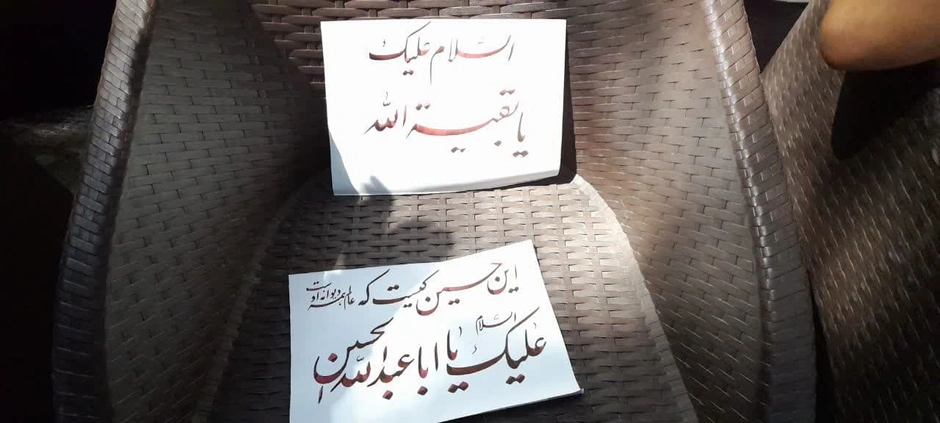 السلام علیک
یا بقیة الله
این حسین کیست که عالم همه دیوانه اوست
السلام علیک یا اباعبدالله الحسین